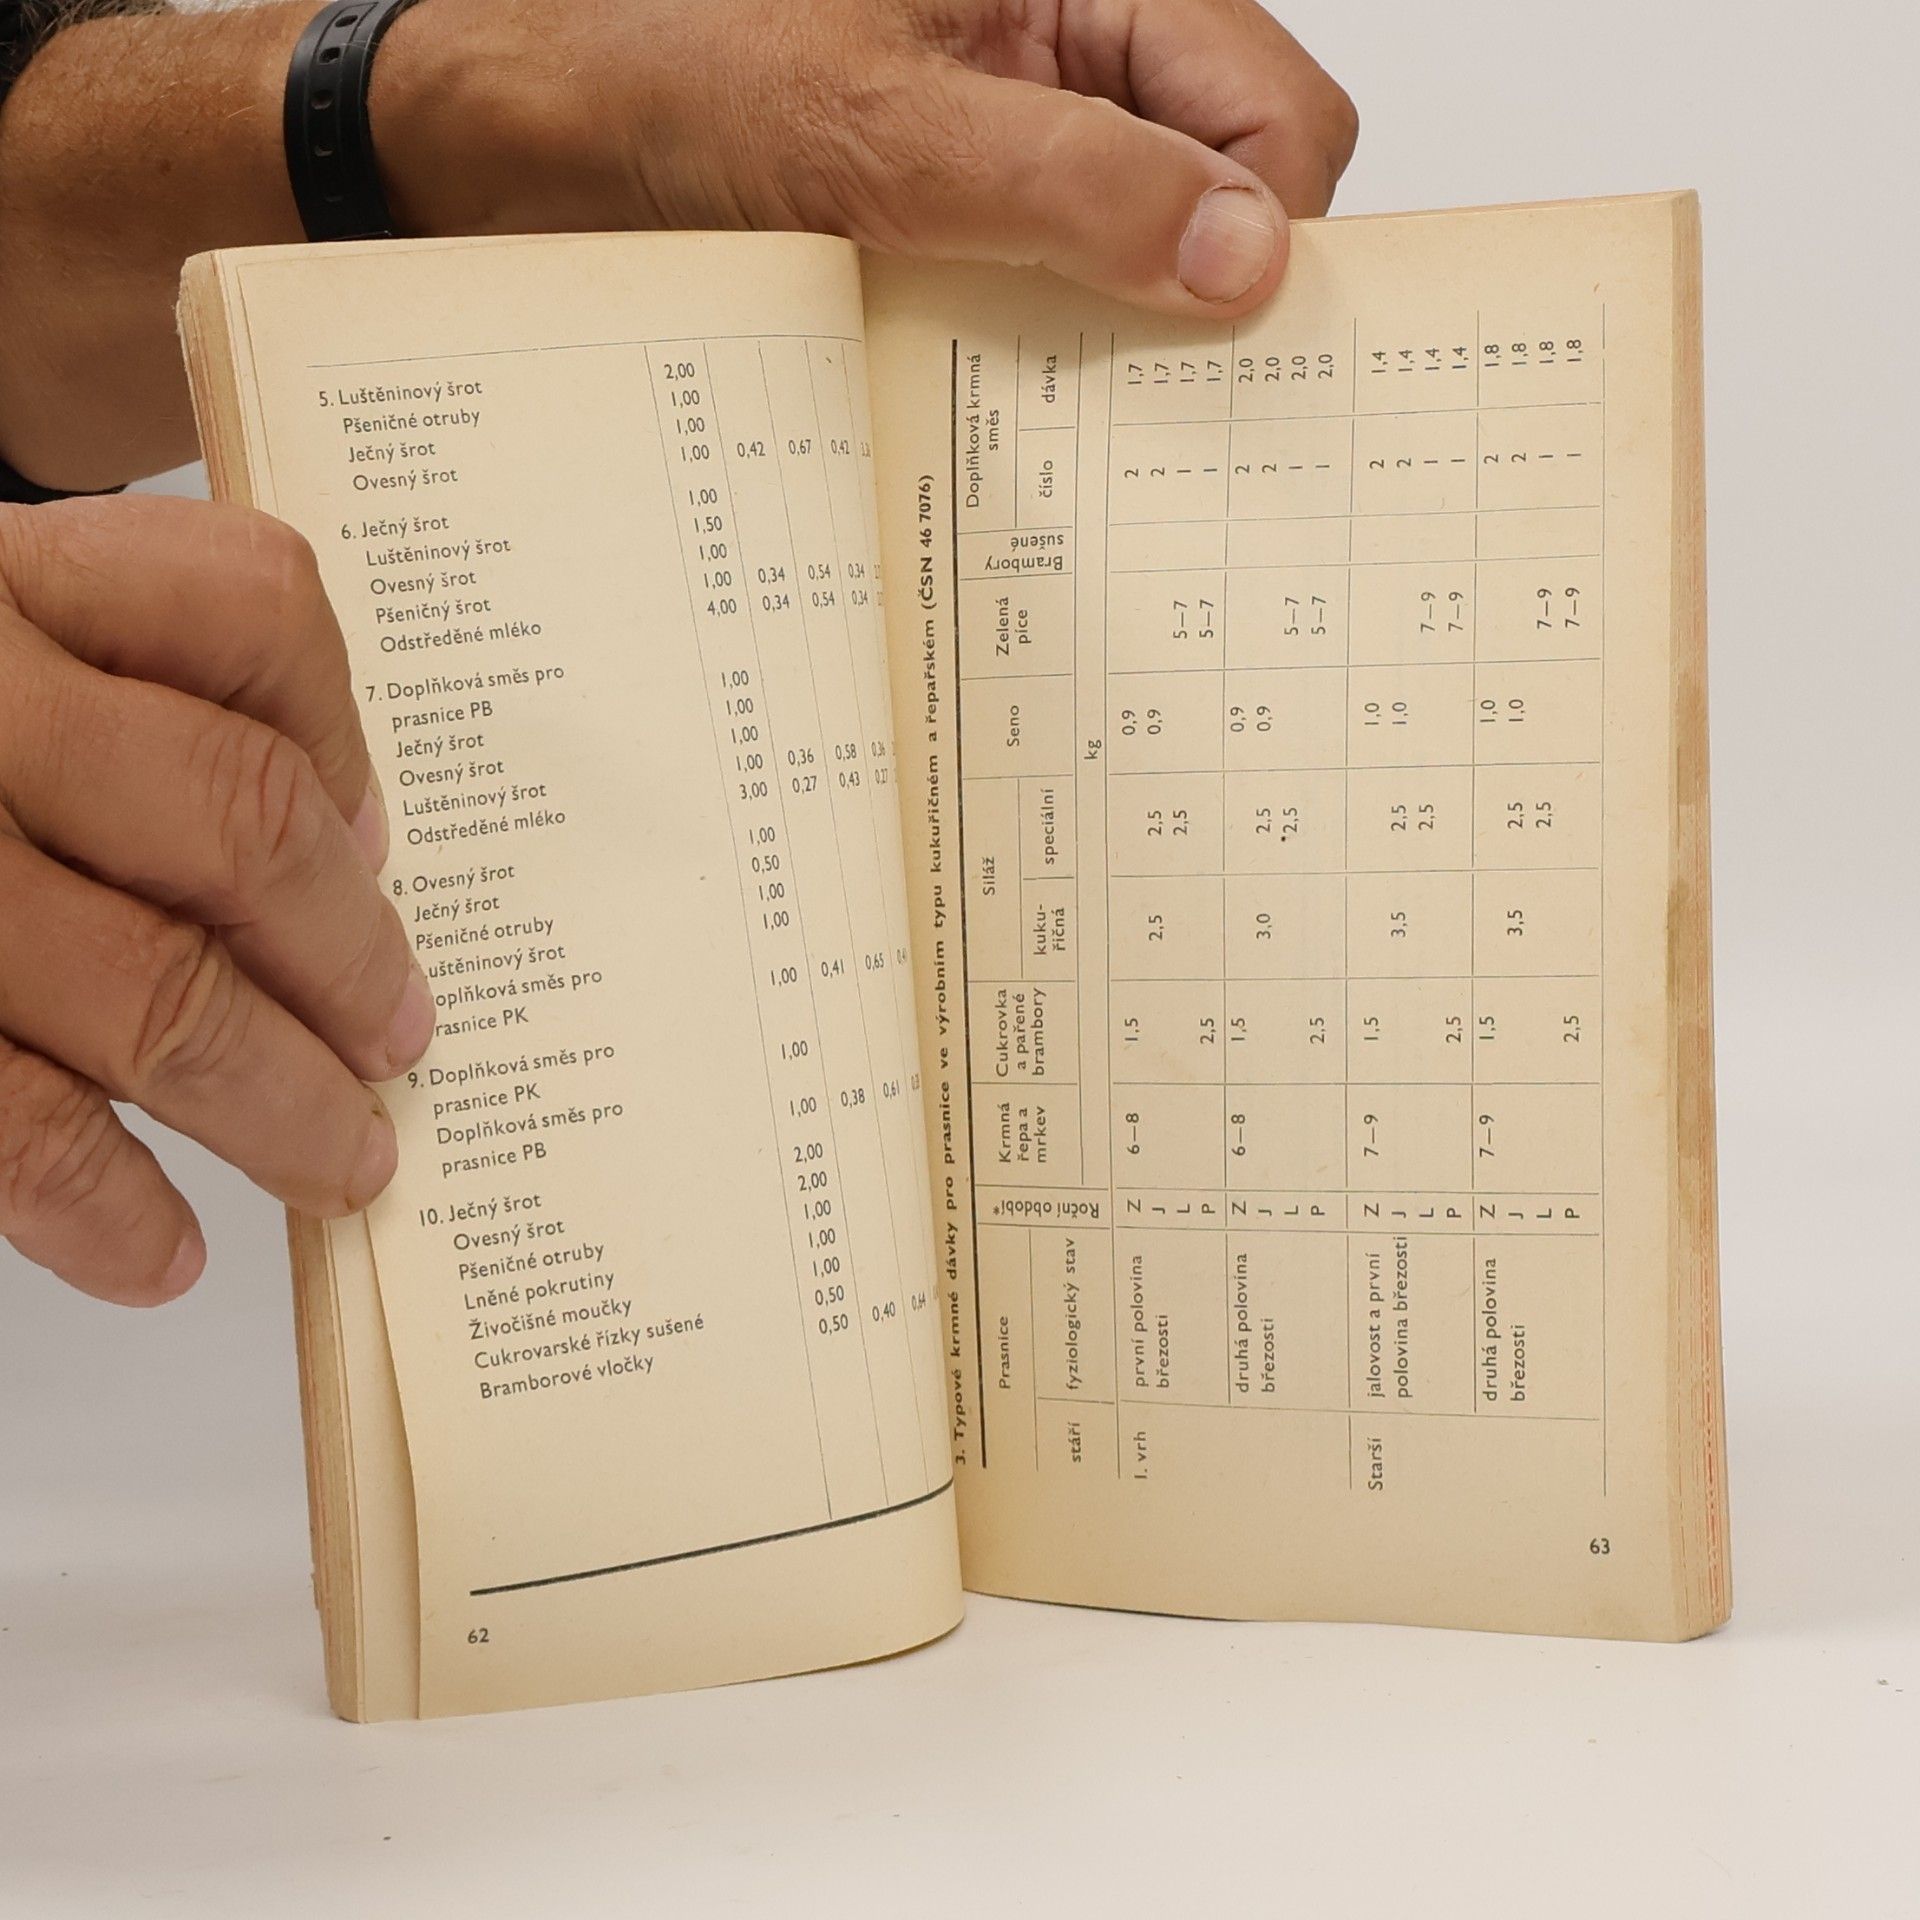 5. Luštěninový šrot 2,00
Pšeničné otruby 1,00
Ječný šrot 1,00
Ovesný šrot 1,00 0,42 0,67 0,42
6. Ječný šrot 1,00
Luštěninový šrot 1,50
Ovesný šrot 1,00
Pšeničný šrot 1,00 0,34 0,54 0,34
Odstředěné mléko 4,00 0,34 0,54 0,34
7. Doplňková směs pro
prasnice PB 1,00
Ječný šrot 1,00
Ovesný šrot 1,00
Luštěninový šrot 1,00 0,36 0,58 0,36
Odstředěné mléko 3,00 0,27 0,43 0,27
8. Ovesný šrot 1,00
Ječný šrot 0,50
Pšeničné otruby 1,00
uštěninový šrot 1,00
oplňková směs pro
rasnice PK 1,00 0,41 0,65
9. Doplňková směs pro
prasnice PK 1,00
Doplňková směs pro
prasnice PB 1,00 0,38 0,61
10. Ječný šrot 2,00
Ovesný šrot 2,00
Pšeničné otruby 1,00
Lněné pokrutiny 1,00
Živočišné moučky 1,00
Cukrovarské řízky sušené 0,50
Bramborové vločky 0,50 0,40 0,64
62
3. Typové krmné dávky pro prasnice ve výrobním typu kukuřičném a řepařském (ČSN 46 7076)
Prasnice
stáří
fyziologický stav
Roční období*
Krmná
řepa a
mrkev
Cukrovka
a pařené
brambory
Siláž
kuku-
řičná
speciální
Seno
Zelená
píce
Brambory
sušené
Doplňková krmná
směs
číslo
dávka
kg
I. vrh první polovina Z 6—8 1,5 0,9 2 1,7
březosti J 2,5 2,5 0,9 2 1,7
L 2,5 5—7 1 1,7
P 2,5 5—7 1 1,7
druhá polovina Z 6—8 1,5 0,9 2 2,0
březosti J 3,0 2,5 0,9 2 2,0
L 2,5 5—7 1 2,0
P 2,5 5—7 1 2,0
Starší jalovost a první Z 7—9 1,5 1,0 2 1,4
polovina březosti J 3,5 2,5 1,0 2 1,4
L 2,5 7—9 1 1,4
P 2,5 7—9 1 1,4
druhá polovina Z 7—9 1,5 1,0 2 1,8
březosti J 3,5 2,5 1,0 2 1,8
L 2,5 7—9 1 1,8
P 2,5 7—9 1 1,8
63